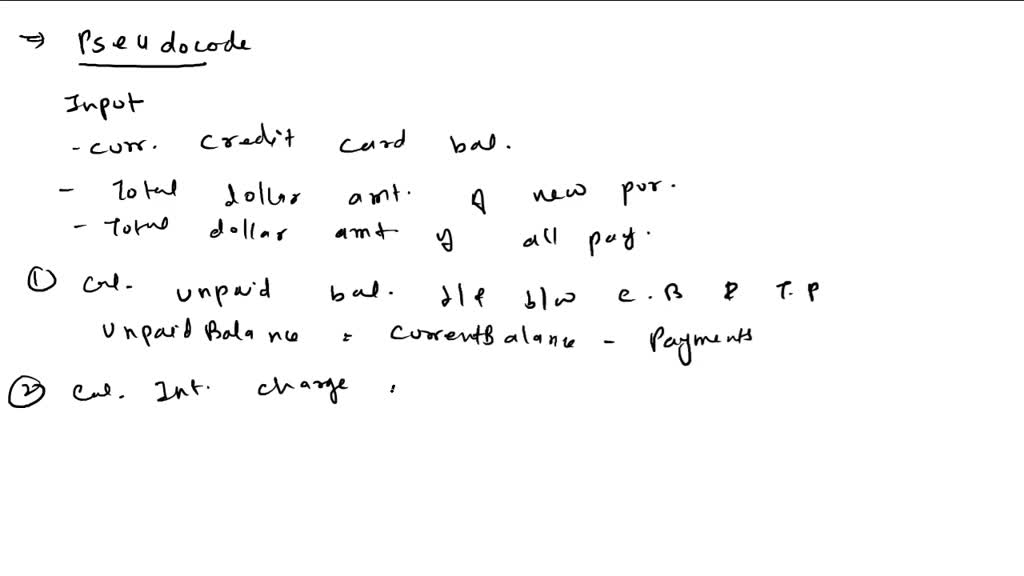 ⇒ Pseudocode
Input
- curr. credit card bal.
- Total dollar amt. of new pur.
- Total dollar amt of all pay.
① Cal. unpaid bal. d/f b/w C.B & T.P
Unpaid Balance = CurrentBalance - Payments
② Cal. Int. charge :